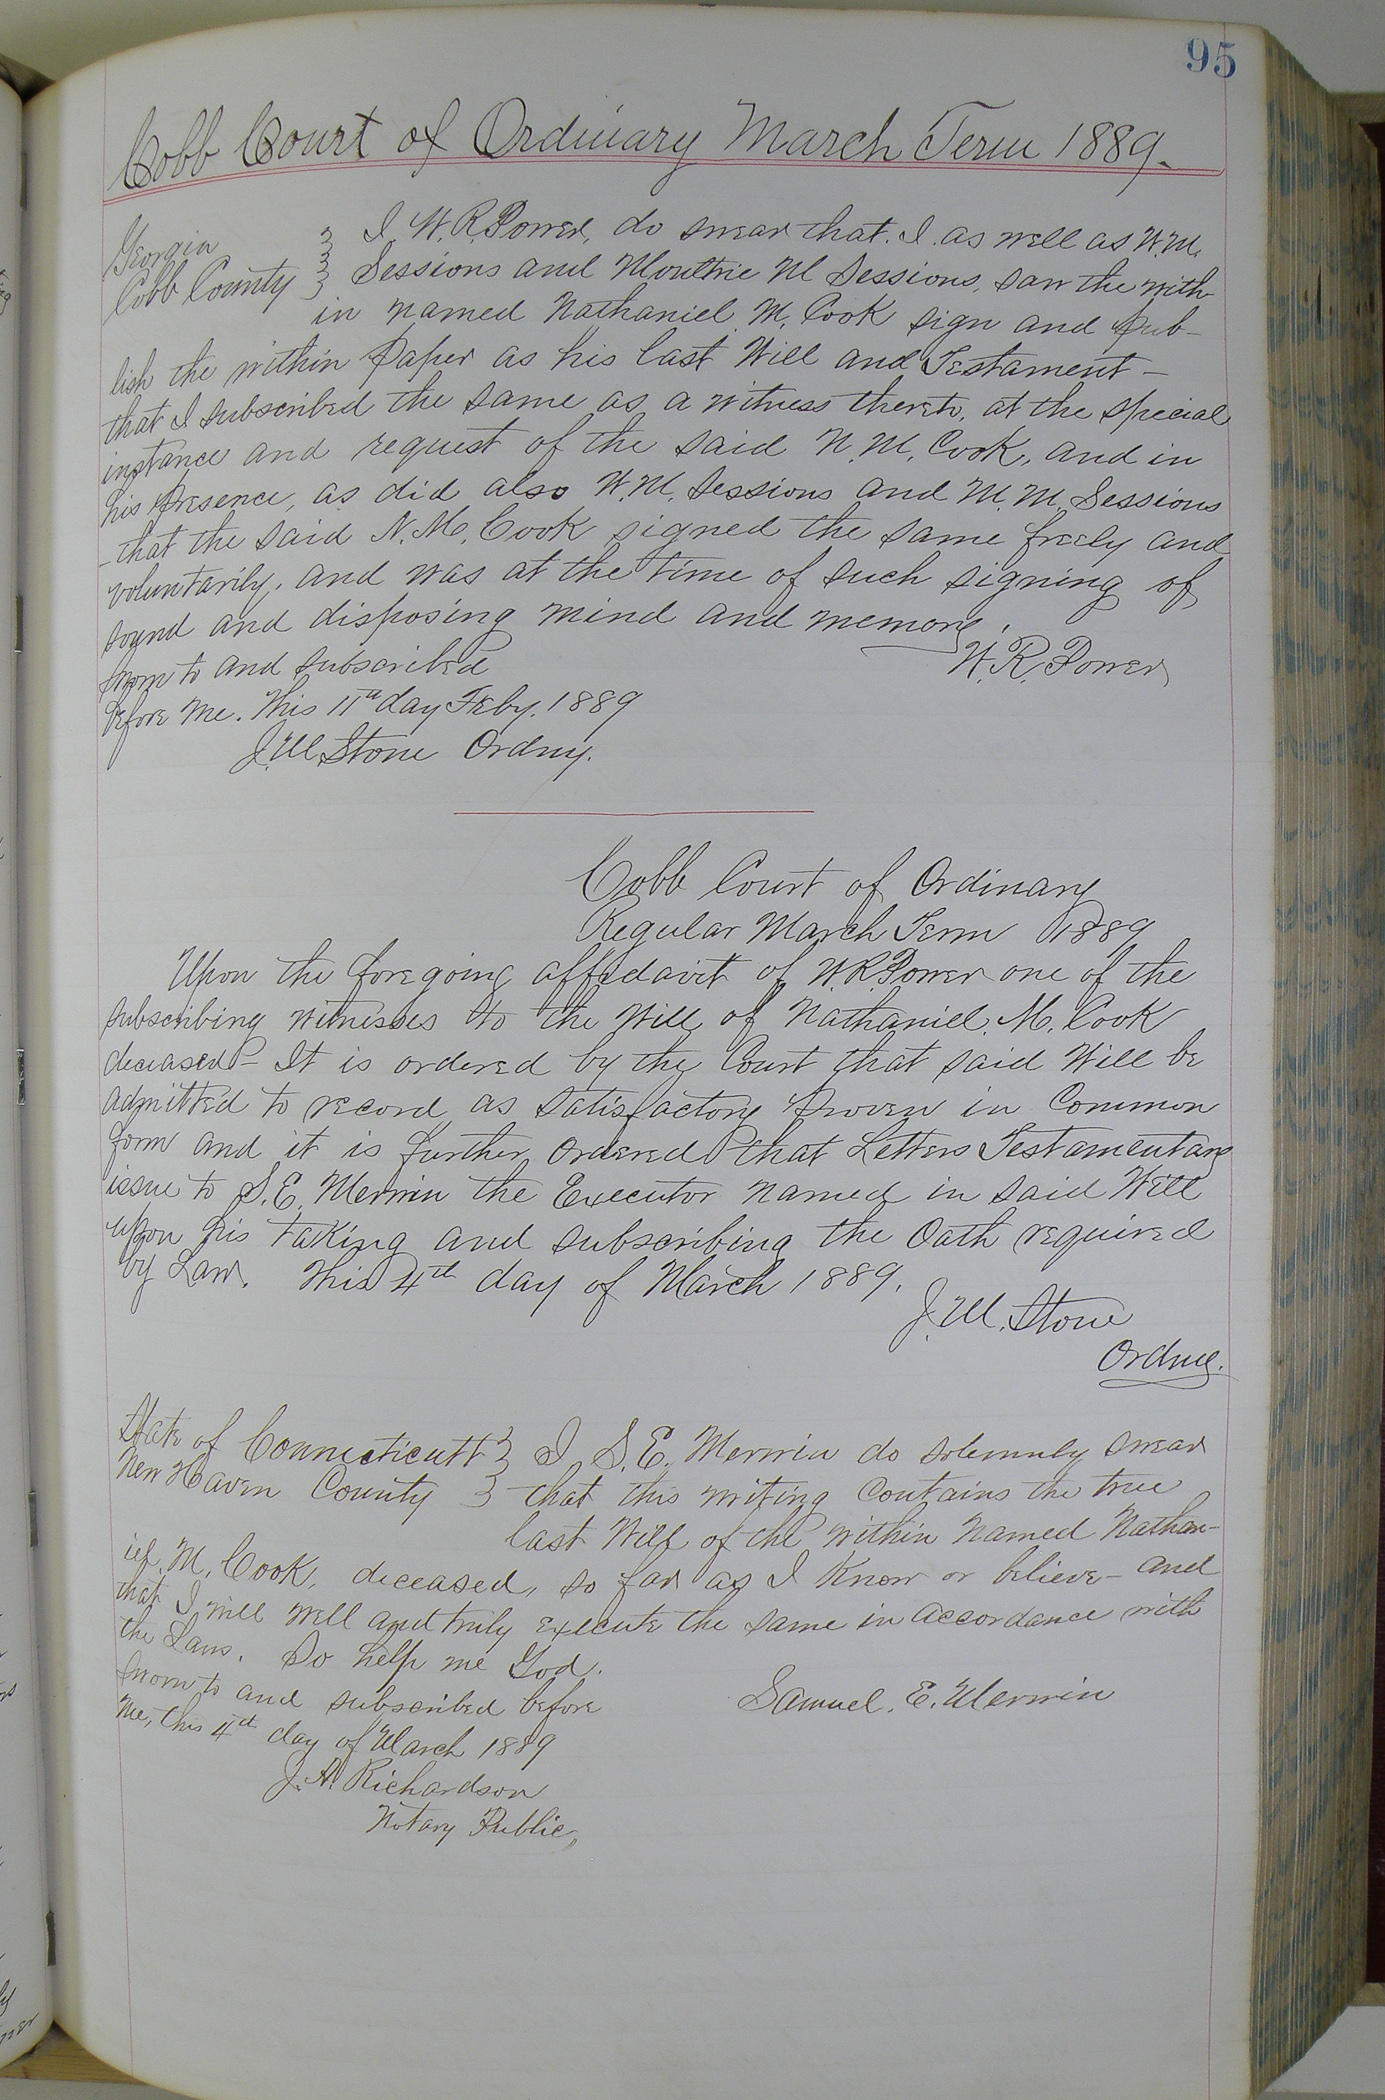 95
Cobb Court of Ordinary March Term 1889.
Georgia
Cobb County
I W. R. Power, do swear that I as well as W. M.
Sessions and Moultrie M Sessions, saw the with-
in named Nathaniel M. Cook sign and pub-
lish the within Paper as his last Will and Testament -
that I subscribed the same as a witness thereto, at the special
instance and request of the said N. M. Cook, and in
his Presence, as did also W. M. Sessions and M. M. Sessions
- that the said N. M. Cook signed the same freely and
voluntarily, and was at the time of such signing of
sound and disposing mind and memory.
W. R. Power
Sworn to and subscribed
before me. This 11th day Feby. 1889
J. M Stone Ordny.
Cobb Court of Ordinary
Regular March Term 1889
Upon the foregoing affidavit of W. R. Power one of the
subscribing witnesses to the Will of Nathaniel. M. Cook
deceased - It is ordered by the Court that said Will be
admitted to record as satisfactory Proven in Common
form and it is further ordered that Letters Testamentary
issue to S. E. Merwin the Executor named in said Will
upon his taking and subscribing the Oath required
by Law. This 4th day of March 1889.
J. M. Stone
Ordny.
State of Connecticutt
New Haven County
I S. E. Merwin do solemnly swear
that this writing contains the true
last Will of the within named Nathan-
iel. M. Cook, deceased, so far as I know or believe - and
that I will well and truly execute the same in accordance with
the Laws. So help me God.
Sworn to and subscribed before
me, this 4th day of March 1889
Samuel. E. Merwin
J. A. Richardson
Notary Public,